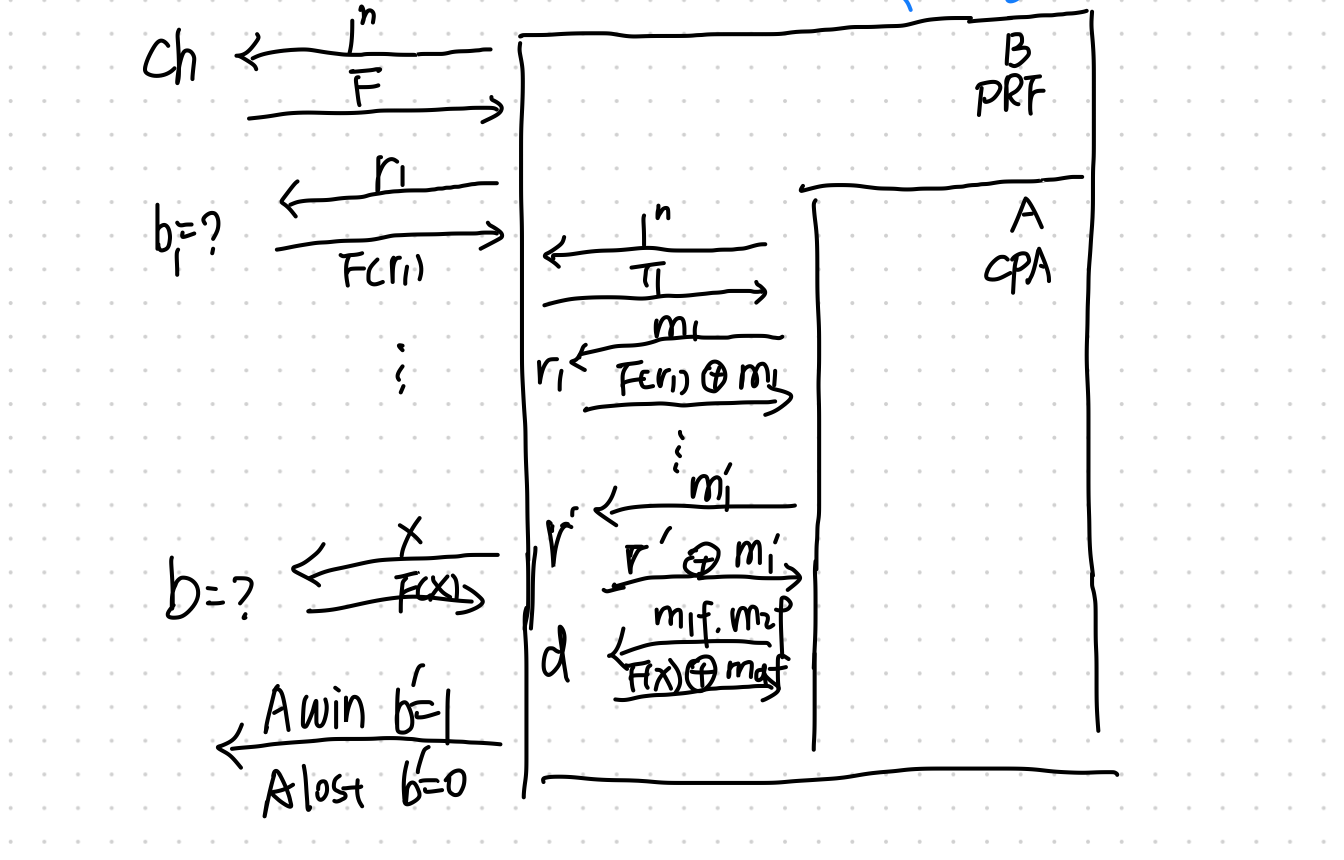 1ⁿ
Ch
F
B
PRF
r₁
b₁=?
F(r₁)
A
CPA
1ⁿ
Π
m₁
r₁
F(r₁) ⊕ m₁
⋮
⋮
m₁'
r'
r' ⊕ m₁'
x
b=?
F(x)
m₁f. m₂f
d
F(x) ⊕ mdf
A win b'=1
A lost b'=0